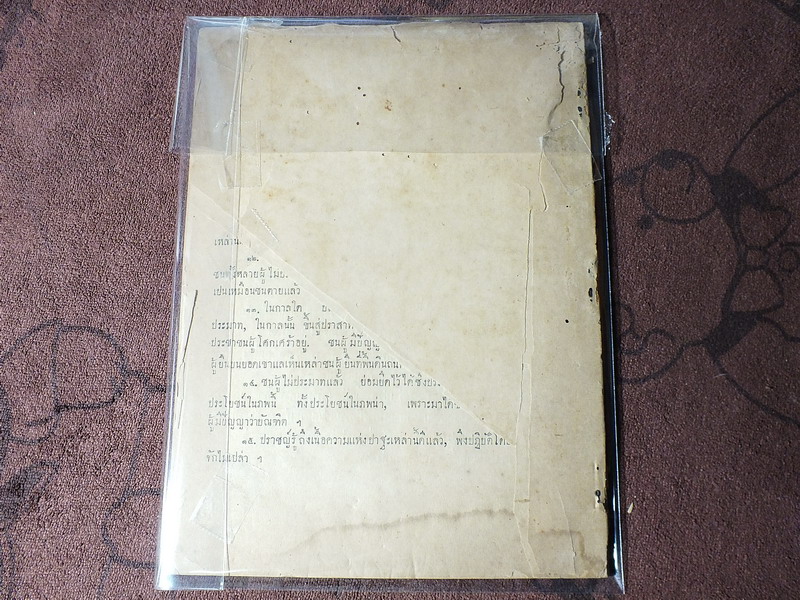 เหล่านั้น ฯ
๑๒.
ชนทั้งหลายผู้ ไม่ป
เป็นเหมือนชนตายแล้ว
๑๓. ในกาลใด
ประมาท, ในกาลนั้น ขึ้นสู่ปราสาท
ประชาชนผู้ โศกเศร้าอยู่. ชนผู้ มีปัญญา
ผู้ยืนบนยอดเขาแลเห็นเหล่าชนผู้ ยืนที่พื้นดินฉะนั้น
๑๔. ชนผู้ไม่ประมาทแล้ว ย่อมยึดไว้ได้ซึ่งประ
ประโยชน์ในภพนี้ ทั้งประโยชน์ในภพน่า, เพราะมาได้
ผู้มีปัญญาว่าบัณฑิต ฯ
๑๕. ปราชญ์รู้ ถึงเนื้อความแห่งปาฐะเหล่านี้ดีแล้ว, พึงปฏิบัติโดย
จักไม่เปล่า ฯ